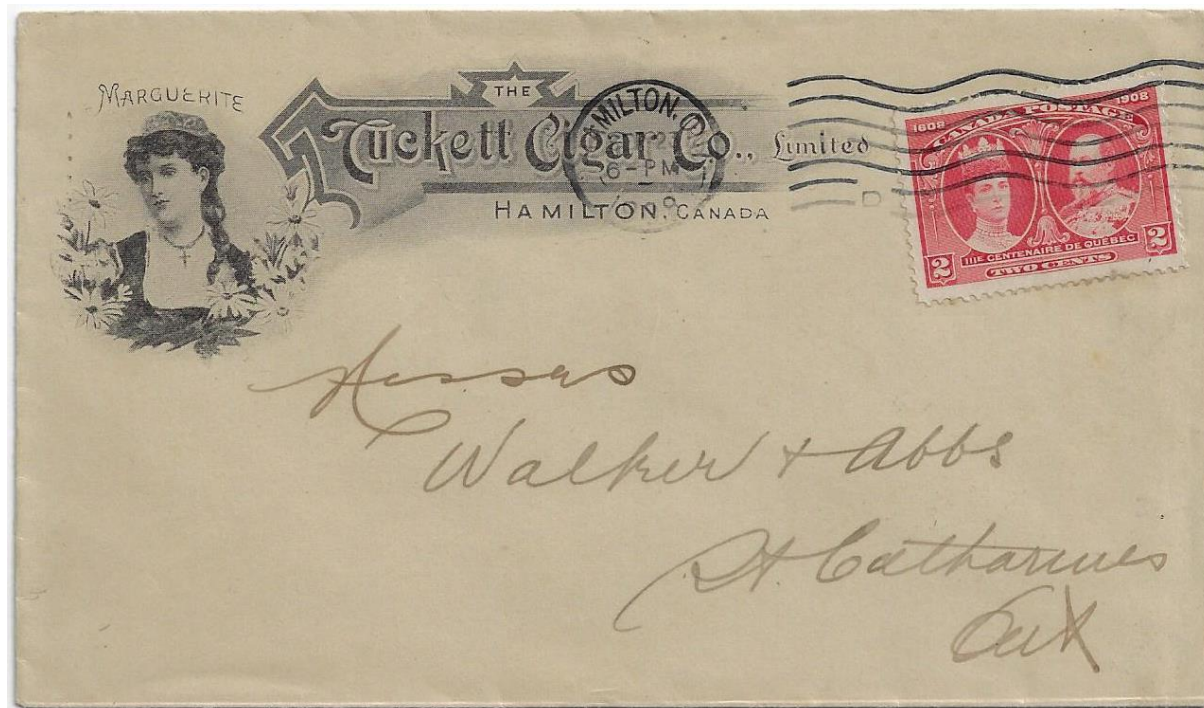 MARGUERITE
THE
Tuckett Cigar Co., Limited
HAMILTON, CANADA
MILTON,
6-PM
D
1608 CANADA POSTAGE 1908
IIIE CENTENAIRE DE QUÉBEC
2 TWO CENTS 2
Messrs
Walker + Abbs
St. Catharines
Ont